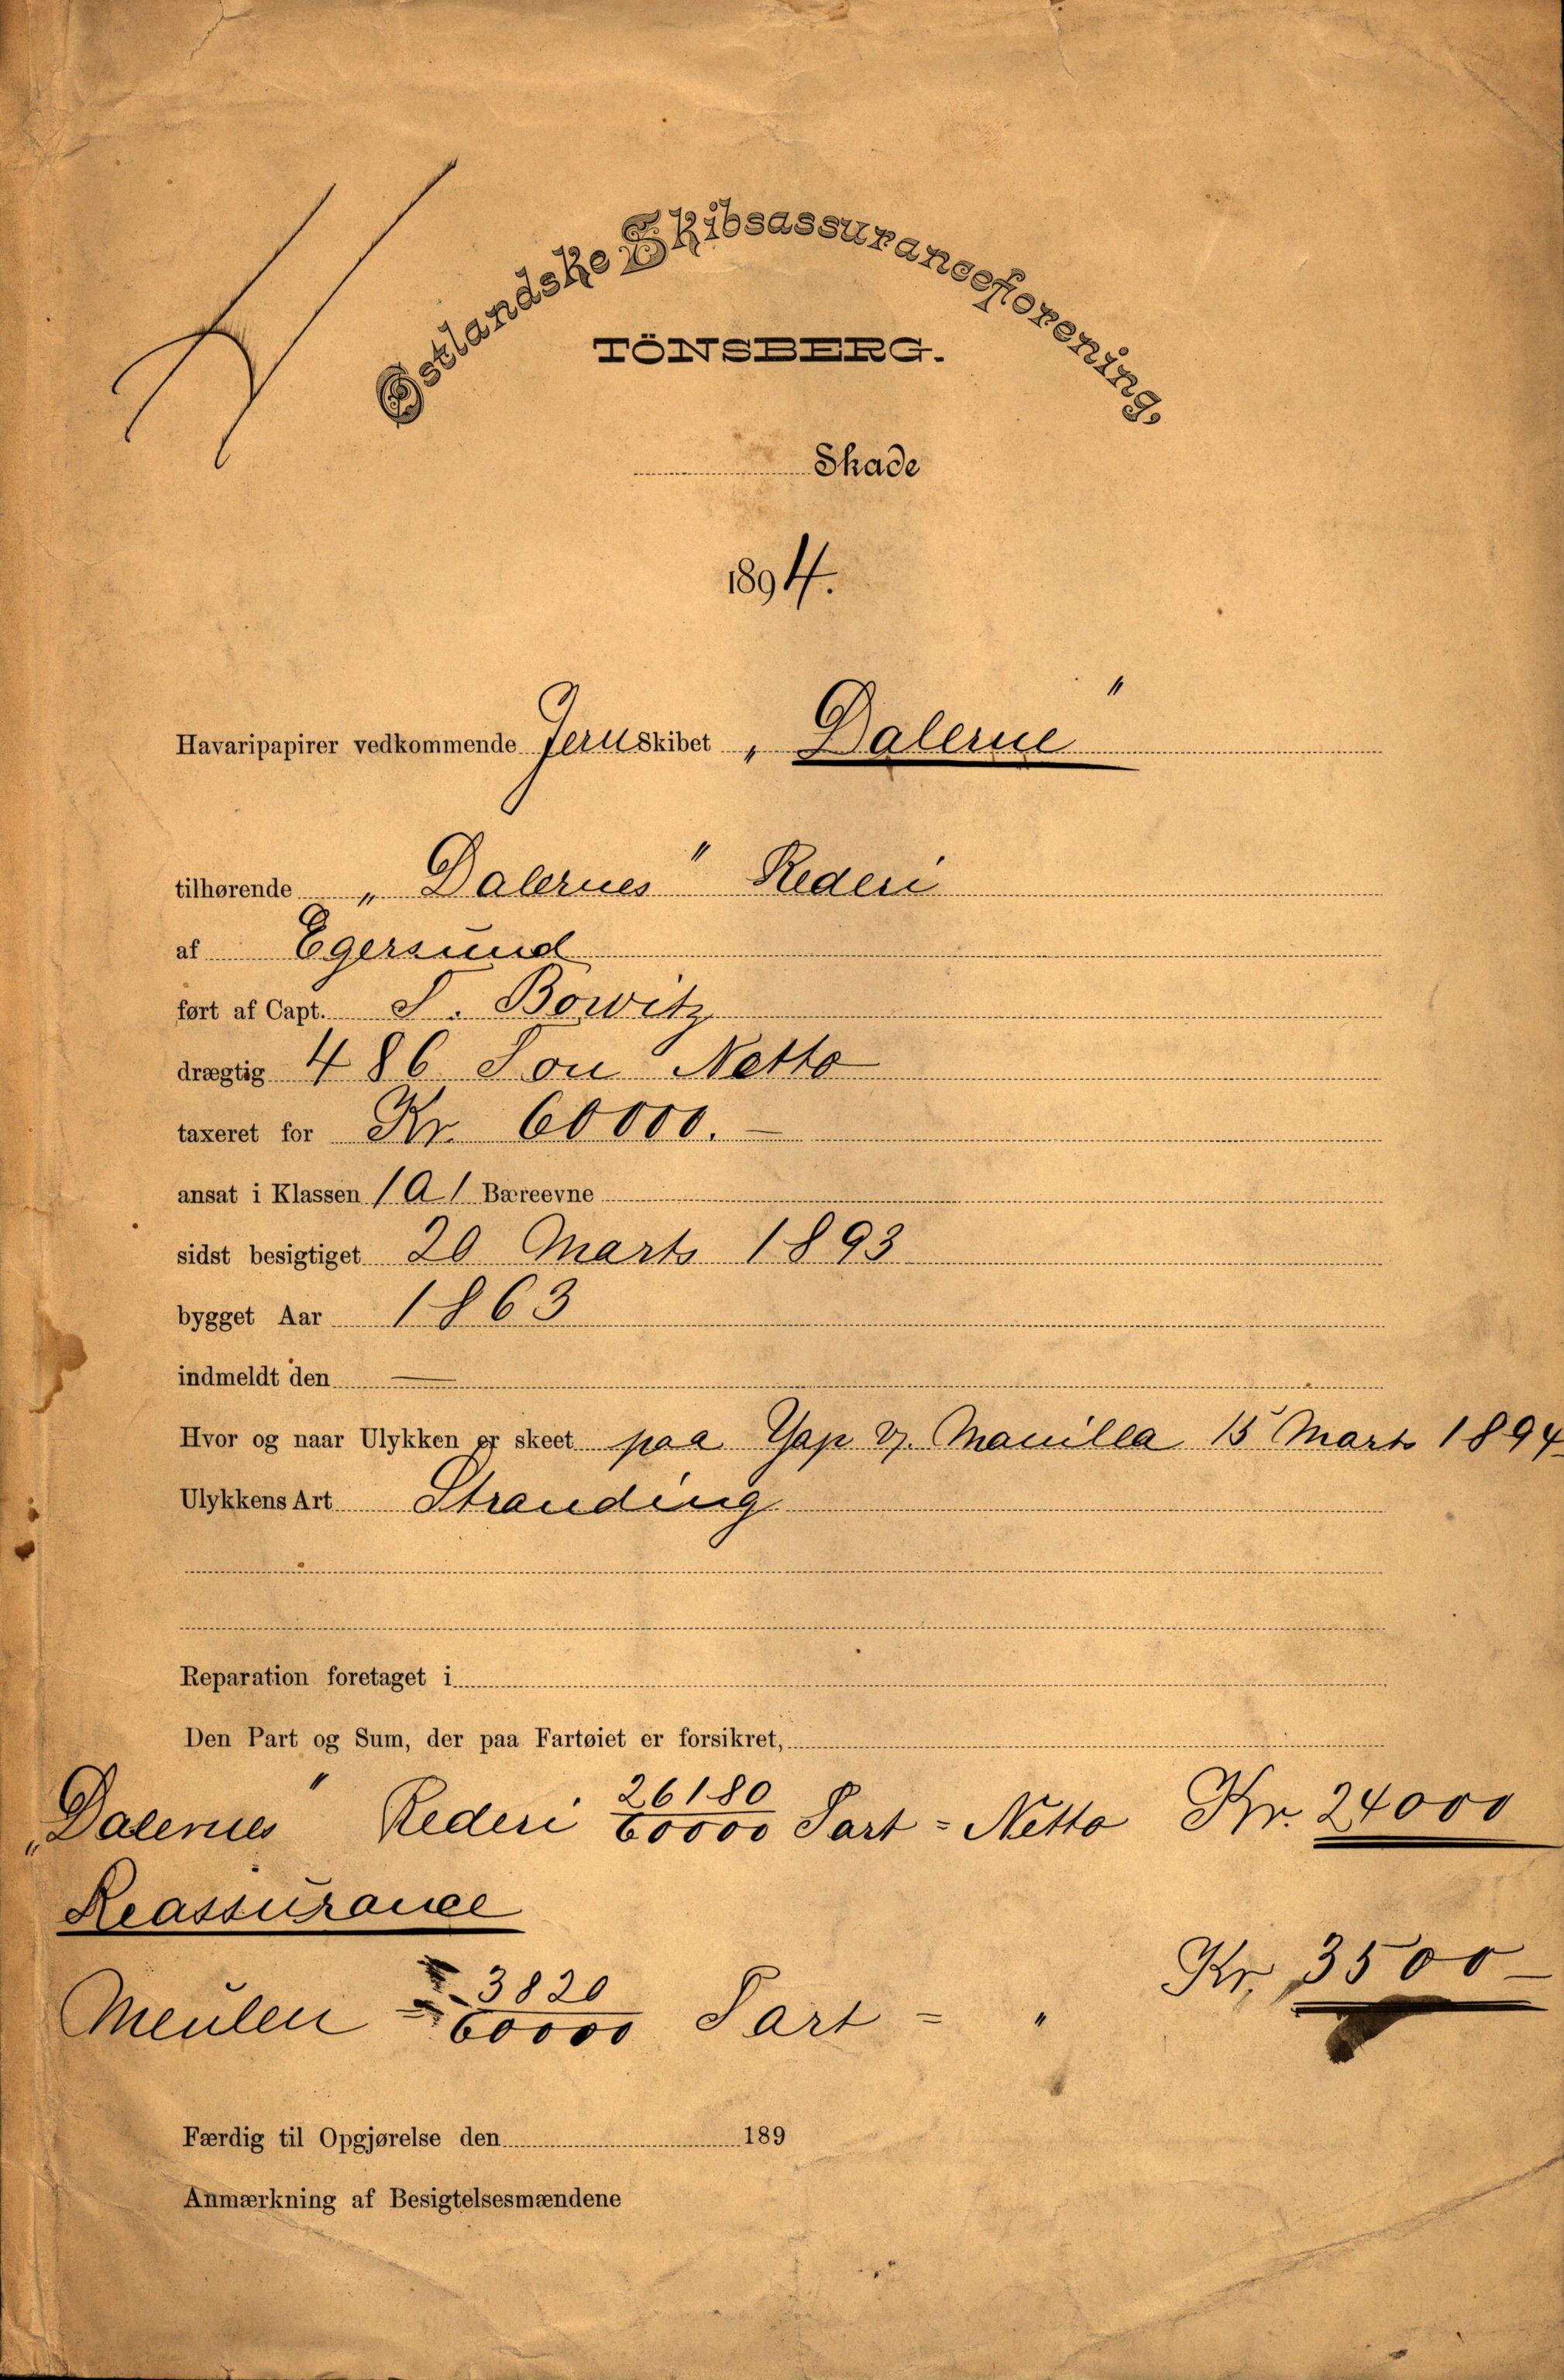 Østlandske Skibsassuranceforening,
TÖNSBERG.
Skade
1894.
Havaripapirer vedkommende Jernskibet „Dalerne"
tilhørende „Dalernes" Rederi
af Egersund
ført af Capt. T. Bowitz
drægtig 486 Ton Netto
taxeret for Kr. 60000.—
ansat i Klassen 1A1 Bæreevne
sidst besigtiget 20 Marts 1893
bygget Aar 1863
indmeldt den —
Hvor og naar Ulykken er skeet paa Yap v. Manilla 15 Marts 1894
Ulykkens Art Stranding
Reparation foretaget i
Den Part og Sum, der paa Fartøiet er forsikret,
„Dalernes" Rederi 26180/60000 Part = Netto Kr. 24000
Reassurance
Meulen = 3820/60000 Part = " Kr. 3500—
Færdig til Opgjørelse den 189
Anmærkning af Besigtelsesmændene